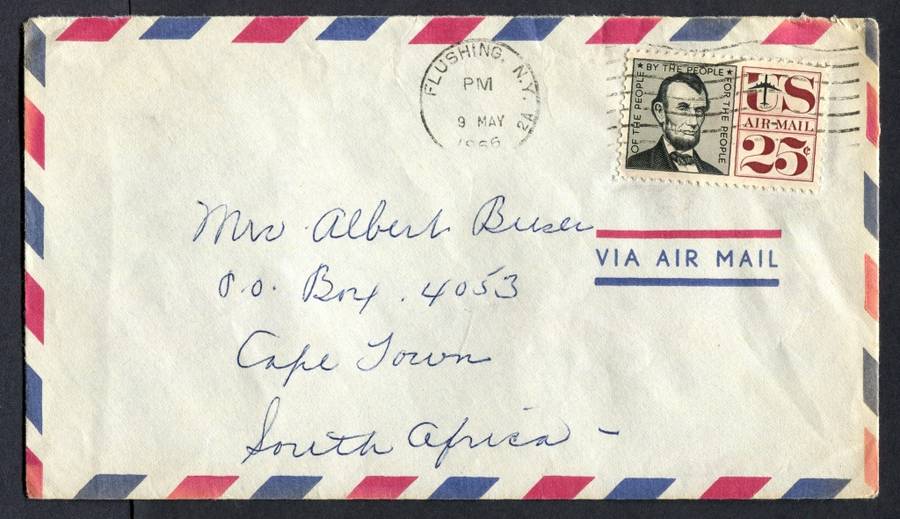 FLUSHING, N.Y.
PM
9 MAY
1966
2A
OF THE PEOPLE ★ BY THE PEOPLE ★ FOR THE PEOPLE
US
AIR-MAIL
25¢
Mrs Albert
VIA AIR MAIL
P.O. Box . 4053
Cape Town
South Africa -